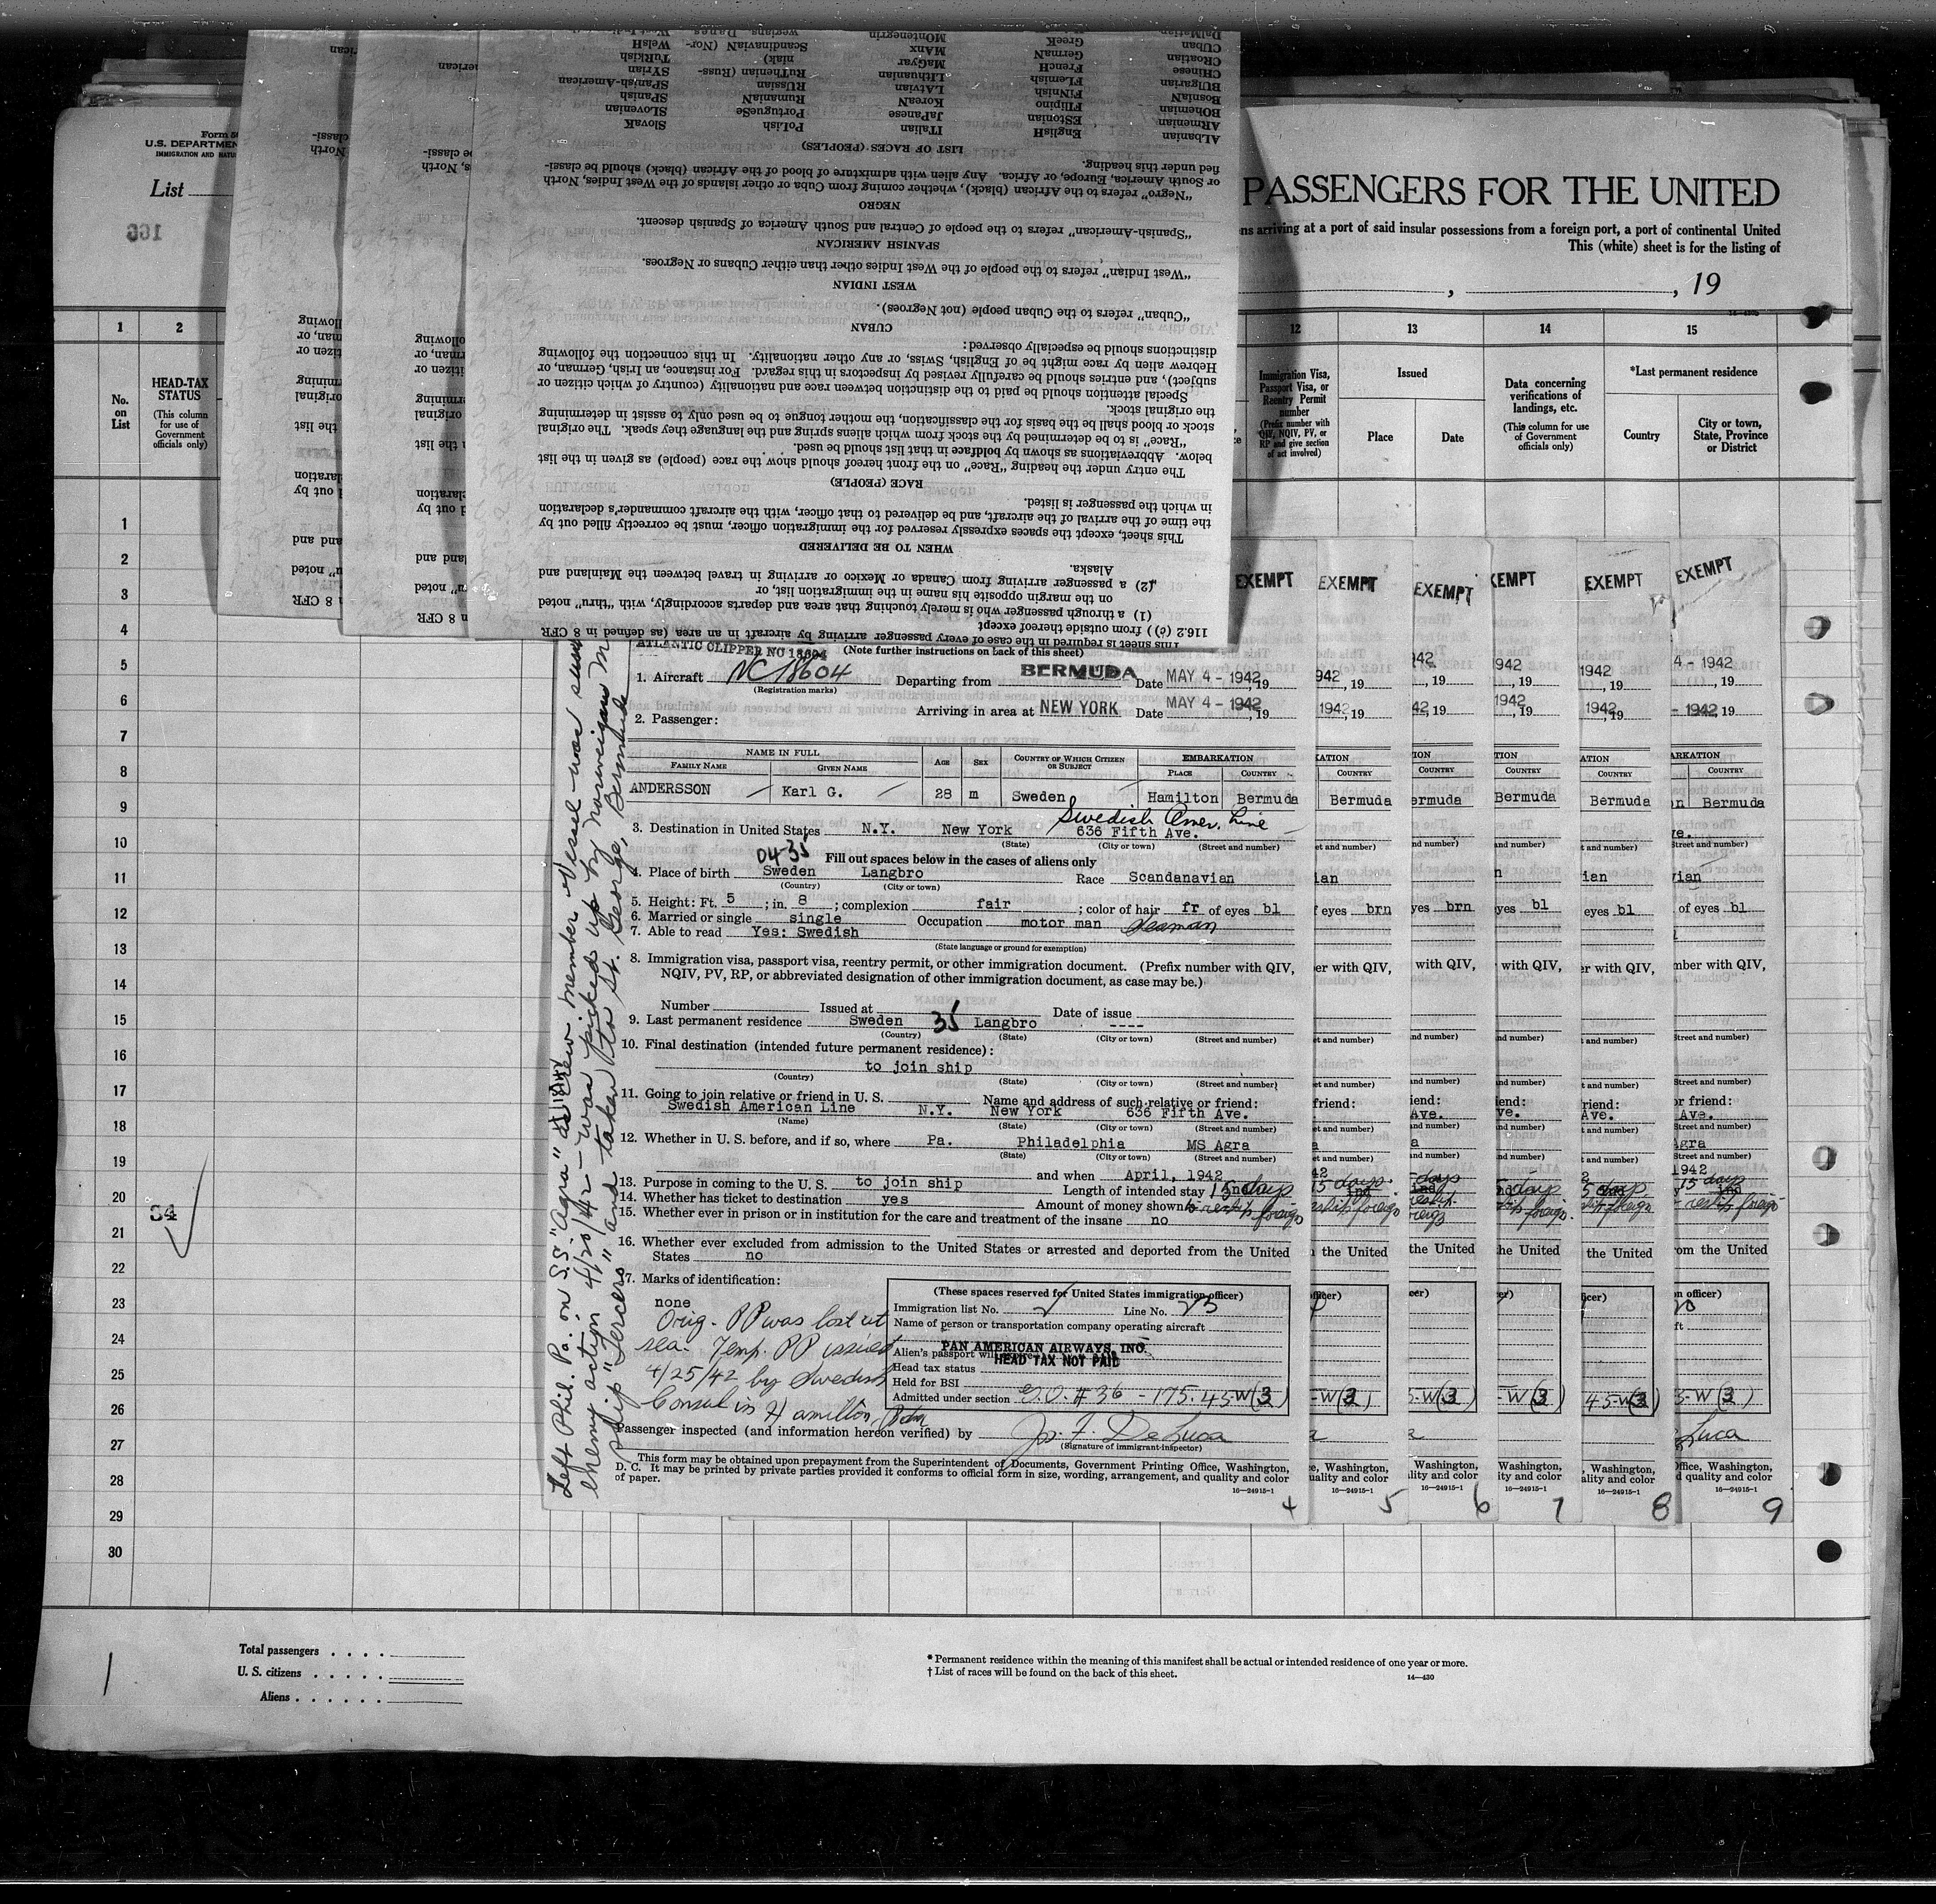 Form 5
U.S. DEPARTMEN
IMMIGRATION AND NATU
List
166
PASSENGERS FOR THE UNITED
ns arriving at a port of said insular possessions from a foreign port, a port of continental United
This (white) sheet is for the listing of
, 19
1 2
12 13 14 15
No. on List
HEAD-TAX STATUS
(This column for use of Government officials only)
Immigration Visa, Passport Visa, or Reentry Permit number
(Prefix number with QIV, NQIV, PV, or RP and give section of act involved)
Issued
Place Date
Data concerning verifications of landings, etc.
(This column for use of Government officials only)
*Last permanent residence
Country
City or town, State, Province or District
1
2
3
4
5
6
7
8
9
10
11
12
13
14
15
16
17
18
19
20
21
22
23
24
25
26
27
28
29
30
34
This sheet is required in the case of every passenger arriving by aircraft in an area (as defined in 8 CFR
116.2 (c) ) from outside thereof except
(1) a through passenger who is merely touching that area and departs accordingly, with "thru" noted
on the margin opposite his name in the immigration list, or
(2) a passenger arriving from Canada or Mexico or arriving in travel between the Mainland and
Alaska.
WHEN TO BE DELIVERED
This sheet, except the spaces expressly reserved for the immigration officer, must be correctly filled out by
the time of the arrival of the aircraft, and be delivered to that officer, with the aircraft commander's declaration
in which the passenger is listed.
RACE (PEOPLE)
The entry under the heading "Race" on the front hereof should show the race (people) as given in the list
below. Abbreviations as shown by boldface in that list should be used.
"Race" is to be determined by the stock from which aliens spring and the language they speak. The original
stock or blood shall be the basis for the classification, the mother tongue to be used only to assist in determining
the original stock.
Special attention should be paid to the distinction between race and nationality (country of which citizen or
subject), and entries should be carefully revised by inspectors in this regard. For instance, an Irish, German, or
Hebrew alien by race might be of English, Swiss, or any other nationality. In this connection the following
distinctions should be especially observed:
CUBAN
"Cuban" refers to the Cuban people (not Negroes).
WEST INDIAN
"West Indian" refers to the people of the West Indies other than either Cubans or Negroes.
SPANISH AMERICAN
"Spanish-American" refers to the people of Central and South America of Spanish descent.
NEGRO
"Negro" refers to the African (black), whether coming from Cuba or other islands of the West Indies, North
or South America, Europe, or Africa. Any alien with admixture of blood of the African (black) should be classi-
fied under this heading.
LIST OF RACES (PEOPLES)
ALbanian EnglisH ITALian PoLish SlovaK
ARmenian EStonian JaPanese PortugueSe SLOvenian
BOhemian FIlipino KoreaN RumaniaN SPanish
BosniaN FiNnish LAtvian RUssian SPAnish-American
BULgarian FLemish LIthuanian RuThenian (Russ- SYrian
CHinese FrencH MaGyar niak) TuRkish
CROatian GermaN MAnx ScandinaviaN (Nor- WelsH
CUban GreeK MOntenegrin wegians, Danes
ATLANTIC CLIPPER NO 18604
(Note further instructions on back of this sheet)
1. Aircraft NC18604 Departing from BERMUDA Date MAY 4 - 1942, 19
(Registration marks)
Arriving in area at NEW YORK Date MAY 4 - 1942, 19
2. Passenger:
NAME IN FULL
FAMILY NAME GIVEN NAME AGE SEX COUNTRY OF WHICH CITIZEN OR SUBJECT EMBARKATION PLACE COUNTRY
ANDERSSON Karl G. 28 m Sweden Hamilton Bermuda
Swedish Amer. Line
3. Destination in United States N.Y. New York 636 Fifth Ave.
(State) (City or town) (Street and number)
04-35 Fill out spaces below in the cases of aliens only
4. Place of birth Sweden Langbro Race Scandanavian
(Country) (City or town)
5. Height: Ft. 5; in. 8; complexion fair; color of hair fr of eyes bl
6. Married or single single Occupation motor man Seaman
7. Able to read Yes: Swedish
(State language or ground for exemption)
8. Immigration visa, passport visa, reentry permit, or other immigration document. (Prefix number with QIV,
NQIV, PV, RP, or abbreviated designation of other immigration document, as case may be.)
Number Issued at Date of issue
9. Last permanent residence Sweden 35 Langbro ----
(Country) (State) (City or town) (Street and number)
10. Final destination (intended future permanent residence):
to join ship
(Country) (State) (City or town) (Street and number)
11. Going to join relative or friend in U. S. Name and address of such relative or friend:
Swedish American Line N.Y. New York 636 Fifth Ave.
(Name) (State) (City or town) (Street and number)
12. Whether in U. S. before, and if so, where Pa. Philadelphia MS Agra
(State) (City or town) (Street and number)
and when April, 1942
13. Purpose in coming to the U. S. to join ship Length of intended stay 15 days
14. Whether has ticket to destination yes Amount of money shown reship foreign
15. Whether ever in prison or in institution for the care and treatment of the insane no
16. Whether ever excluded from admission to the United States or arrested and deported from the United
States no
17. Marks of identification:
none
Orig. PP was lost at
sea. Temp. PP issued
4/25/42 by Swedish
Consul in Hamilton, Bda
(These spaces reserved for United States immigration officer)
Immigration list No. Line No. 23
Name of person or transportation company operating aircraft
PAN AMERICAN AIRWAYS, INC.
Alien's passport will expire
HEAD TAX NOT PAID
Head tax status
Held for BSI
Admitted under section G.O. #36 - 175.45-W(3)
Passenger inspected (and information hereon verified) by Jos. F. DeLuca
(Signature of immigrant inspector)
This form may be obtained upon prepayment from the Superintendent of Documents, Government Printing Office, Washington,
D. C. It may be printed by private parties provided it conforms to official form in size, wording, arrangement, and quality and color
of paper.
16—24915-1
4 5 6 7 8 9
Left Phil. Pa. on S.S. "Agra" as crew member. Vessel was sunk
enemy action 4/20/42 — was picked up by Norwegian M
ship "Tercero" and taken to St. George, Bermuda
EXEMPT EXEMPT EXEMPT EXEMPT EXEMPT EXEMPT
Total passengers
U. S. citizens
Aliens
* Permanent residence within the meaning of this manifest shall be actual or intended residence of one year or more.
† List of races will be found on the back of this sheet.
14—430